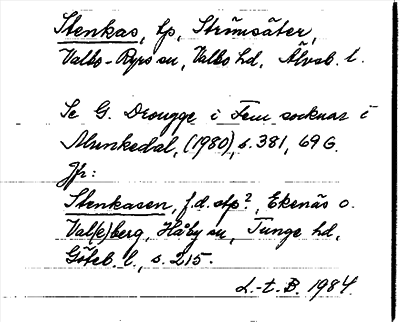 Stenkas, tp, Strömsäter,
Valbo-Ryrs sn, Valbo hd, Älvsb. l.
Se G. Drougge i Fem socknar i
Munkedal, (1980), s. 381, 69 G.
Jfr:
Stenkasen, f.d. stp?, Ekenäs o.
Val(e)berg, Håby sn, Tunge hd,
Göteb. l., s. 215.
L.-t. B. 1984.